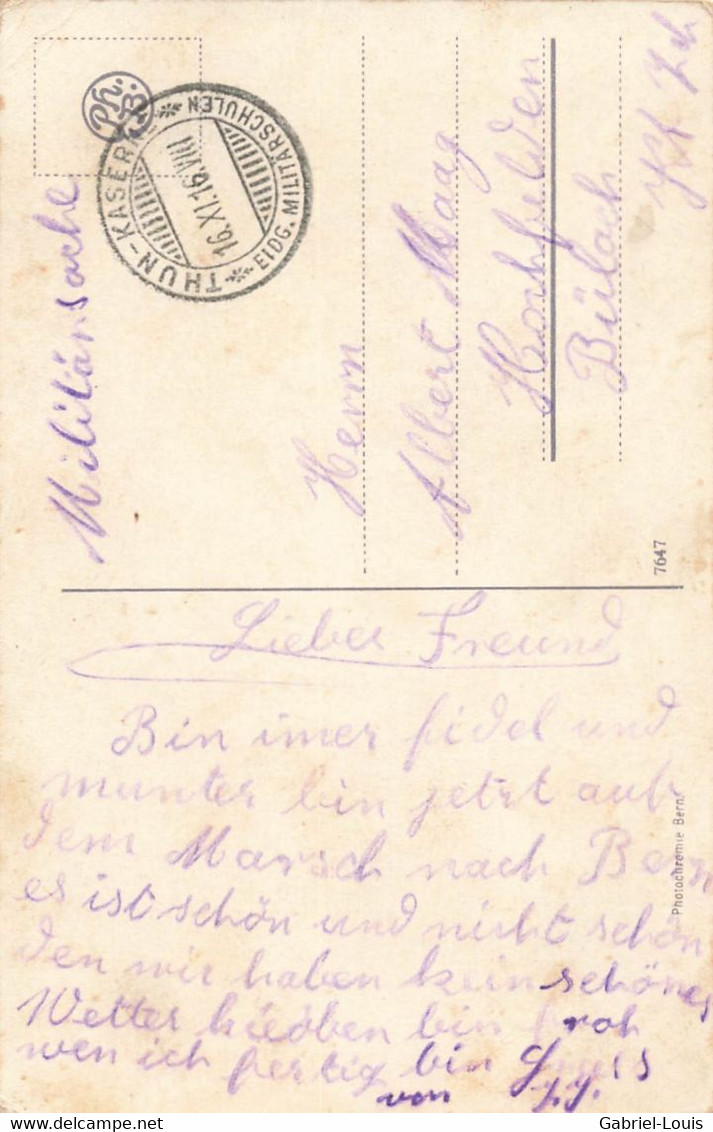 Militärsache
Ph. B.
THUN-KASERNE
16.XI.16.VIII
EIDG. MILITÄRSCHULEN
Herrn
Albert Maag
Hochfelden
Bülach
7647
Lieber Freund
Bin imer fidel und
munter bin jetzt auf
dem Marsch nach Bern
es ist schön und nicht schön
den wir haben kein schönes
Wetter bin froh
wen ich fertig bin Gruss
von
Photochromie Bern.
Gabriel-Louis